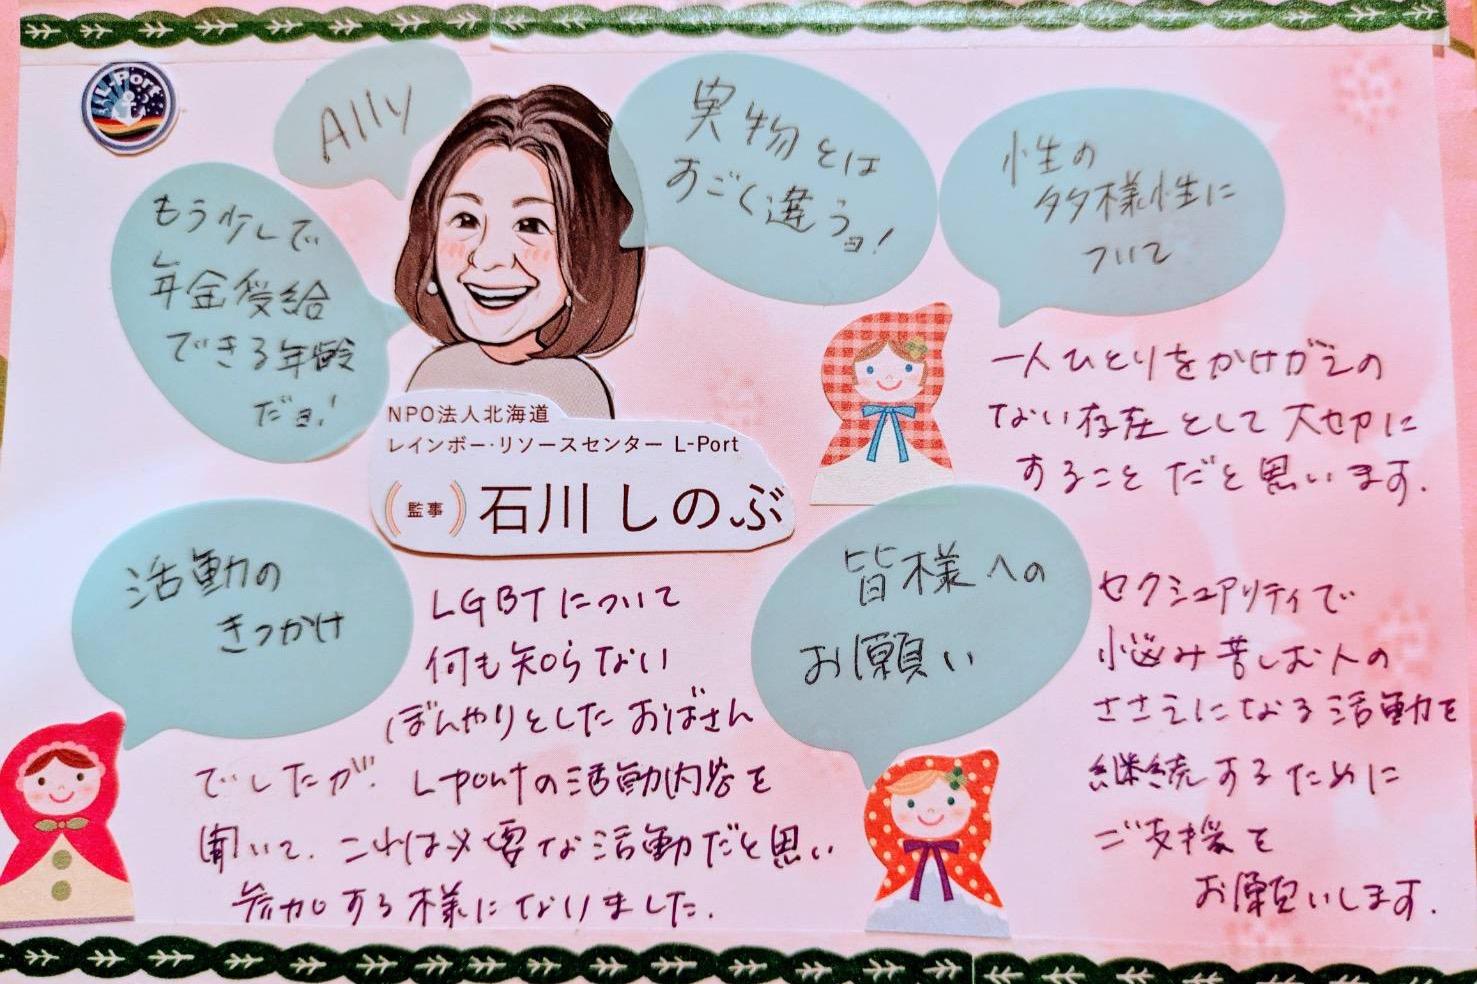 L-Port
Ally
もう少しで
年金受給
できる年齢
だョ!
実物とは
すごく違うョ!
性の
多様性に
ついて
一人ひとりをかけがえの
ない存在として大切に
することだと思います.
NPO法人北海道
レインボー・リソースセンター L-Port
(監事) 石川しのぶ
活動の
きっかけ
LGBTについて
何も知らない
ぼんやりとしたおばさん
でしたが、L-portの活動内容を
聞いて、これは必要な活動だと思い
参加する様になりました.
皆様への
お願い
セクシュアリティで
悩み苦しむ人の
ささえになる活動を
継続するために
ご支援を
お願いします.